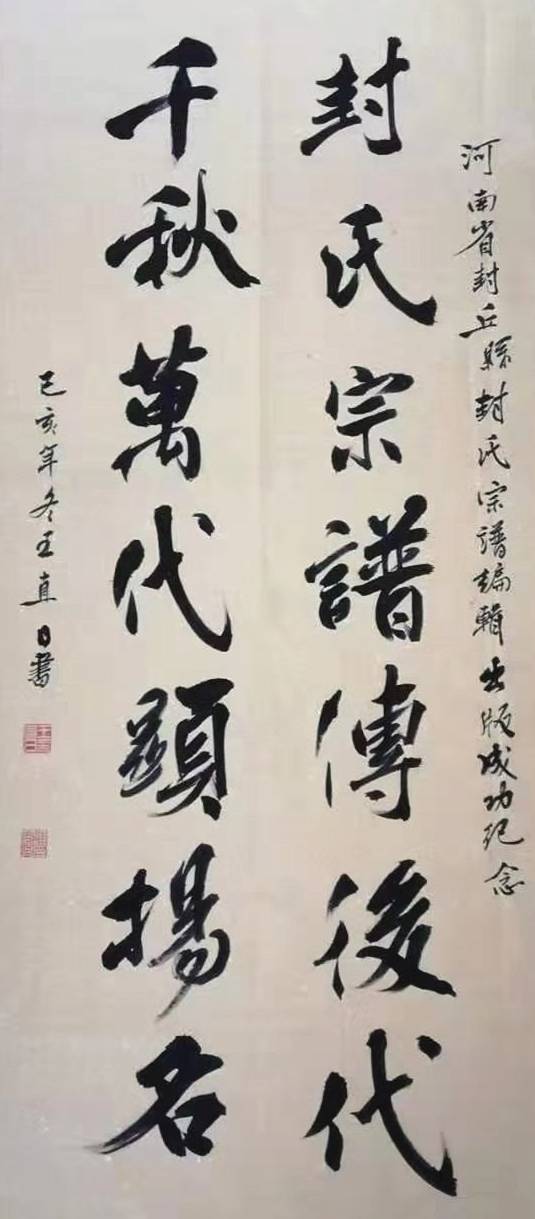 河南省封丘縣封氏宗譜编輯出版成功纪念
封氏宗譜傳後代
千秋萬代顕揚名
己亥年冬王直日書